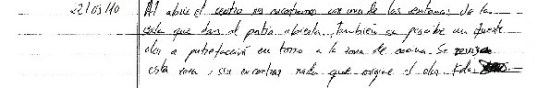 22/03/10 Al abrir el centro nos encontramos con una de las ventanas de la
sala que dan al patio abierta, también se percibe un fuerte
olor a putrefacción en torno a la zona de cocina. Se revisa
esta zona, sin encontrar nada que origine el olor.